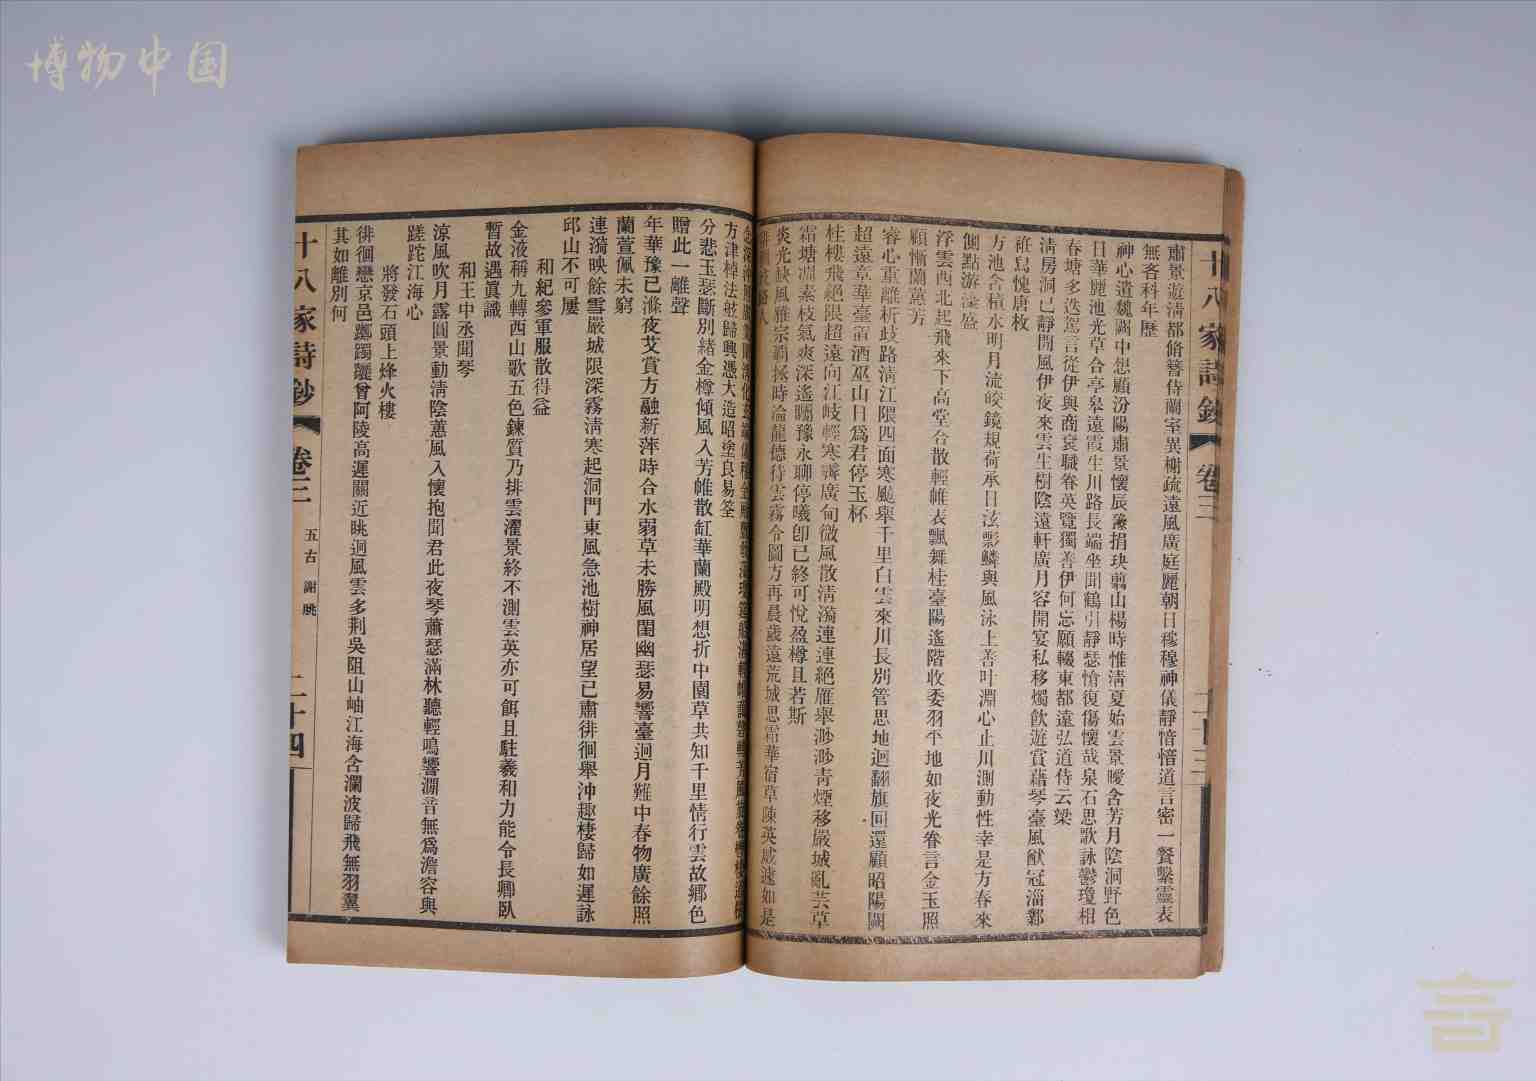 博物中国
十八家詩鈔
卷三
二十三
肅景遊清都脩簪侍蘭室異榭疏遠風廣庭麗朝日穆穆神儀靜愔愔道言密一餐繫靈表
無吝科年歷
神心遺魏闕中想顧汾陽肅景懷辰豫捐玦翦山楊時惟清夏始雲景曖含芳月陰洞野色
日華麗池光草合亭皋遠霞生川路長端坐聞鶴引靜瑟愴復傷懷哉泉石思歌詠鬱瓊相
春塘多迭駕言從伊與商袞職眷英覽獨善伊何忘願輟東都遠弘道侍云梁
清房洞已靜閒風伊夜來雲生樹陰遠軒廣月容開宴私移燭飲遊賞藉琴臺風猷冠淄鄴
誰爲愧唐枚
方池含積水明月流皎鏡規荷承日泫影鱗與風泳上善叶淵心止川測動性幸是方春來
側點游濠盛
浮雲西北起飛來下高堂合散輕帷表飄舞桂臺陽遙階收委羽平地如夜光眷言金玉照
顧慚蘭蕙芳
睿心重離析歧路清江隈四面寒飈舉千里白雲來川長別管思地迥翻旗回還顧昭陽闕
超遠章華臺置酒巫山日爲君停玉杯
桂樓飛絕限超遠向江岐輕寒霽廣甸微風散清漪連連絕雁舉渺渺青煙移嚴城亂芸草
霜塘凋素枝氣爽深遙矚豫永聊停曦卽已終可悅盈樽且若斯
炎光缺風雅宗霸拯時淪龍德待雲霧令圖方再晨歲遠荒城思霜華宿草陳英威遽如是
方津棹法舷歸興憑大造昭塗良易筌
分悲玉瑟斷別緒金樽傾風入芳帷散缸華蘭殿明想折中園草共知千里情行雲故鄉色
贈此一離聲
年華豫已滌夜艾賞方融新萍時合水弱草未勝風閨幽瑟易響臺迥月難中春物廣餘照
蘭萱佩未窮
連漪映餘雪嚴城限深霧清寒起洞門東風急池樹神居望已肅徘徊舉沖趣棲歸如遲詠
邱山不可屢
和紀參軍服散得益
金液稱九轉西山歌五色鍊質乃排雲濯景終不測雲英亦可餌且駐羲和力能令長卿臥
暫故遇眞識
和王中丞聞琴
涼風吹月露圓景動清陰蕙風入懷抱聞君此夜琴蕭瑟滿林聽輕鳴響澗音無爲澹容與
蹉跎江海心
將發石頭上烽火樓
徘徊戀京邑躑躅躧曾阿陵高遲關近眺迥風雲多荆吳阻山岫江海含瀾波歸飛無羽翼
其如離別何
十八家詩鈔
卷三
五古
謝眺
二十四